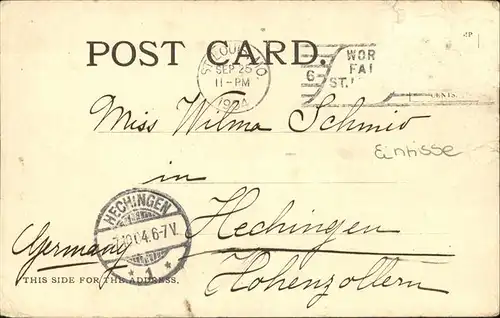 POST CARD.
ST. LOUIS, MO
SEP 25
11-PM
1904
6
WOR
FAI
ST.L
CENTS.
Miss Wilma Schmid
Einrisse
in
HECHINGEN
10 04. 6-7 V.
* 1 *
Hechingen
Germany
Hohenzollern
THIS SIDE FOR THE ADDRESS.